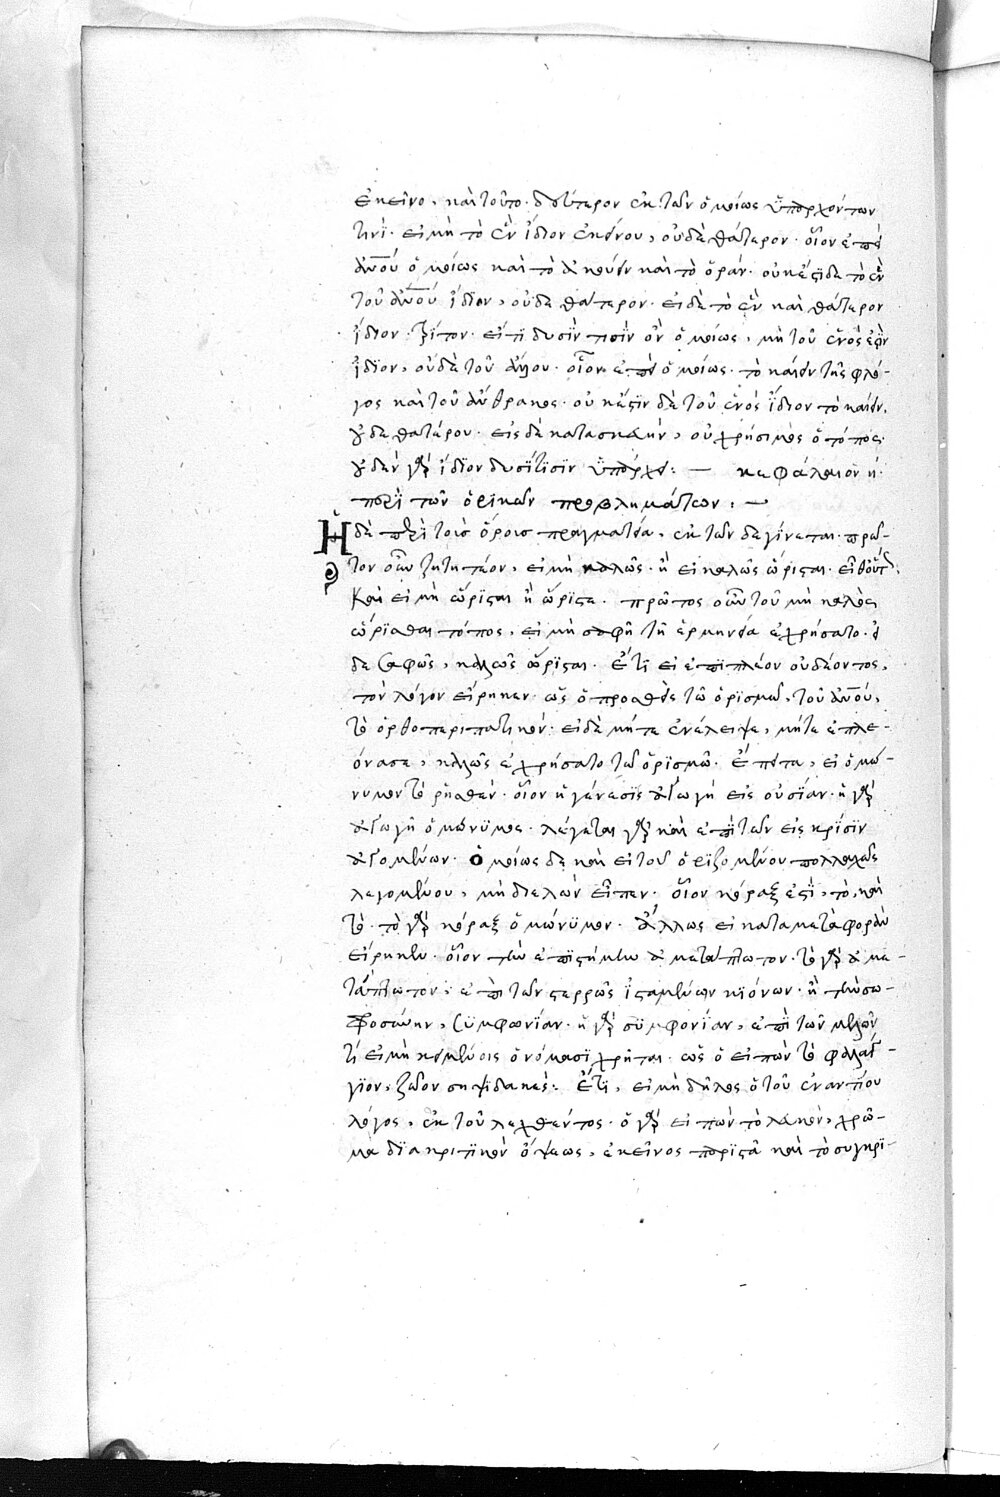 ἐκεῖνο, καὶ τοῦτο. δεύτερον ἐκ τῶν ὁμοίως ὑπαρχόντων
τινί. εἰ μὴ τὸ ἓν ἴδιον ἐκείνου, οὐδὲ θάτερον. οἷον ἐπεὶ
ἀνου ὁμοίως καὶ τὸ ἀκούειν καὶ τὸ ὁρᾶν. οὐκ ἔστι δὲ τὸ ἓν
τοῦ ἀνου ἴδιον, οὐδὲ θάτερον. εἰ δὲ τὸ ἓν καὶ θάτερον
ἴδιον. τρίτον. εἴ τι δυσίν τισιν ὂν ὁμοίως, μὴ τοῦ ἑνός ἐστιν
ἴδιον, οὐδὲ τοῦ ἄλλου. οἷον ἐπεὶ ὁμοίως τὸ καίειν τῆς φλο-
γὸς καὶ τοῦ ἄνθρακος. οὐκ ἔστιν δὲ τοῦ ἑνὸς ἴδιον τὸ καίειν,
οὐδὲ θατέρου. εἰς δὲ κατασκευὴν, οὐ χρήσιμος ὁ τόπος.
οὐδὲν γὰρ ἴδιον δυσί τισιν ὑπάρχει: — κεφάλαιον η
περὶ τῶν ὁρικῶν προβλημάτων: —
Ἡ δὲ περὶ τοὺς ὅρους πραγματεία, ἐκ τῶν δε γίνεται. πρῶ-
τον οὖν ζητητέον, εἰ μὴ καλῶς. ἢ εἰ καλῶς ὥρισται. εἶθ' οὕτως
καὶ εἰ μὴ ὥρισται ἢ ὥρισε. πρῶτος οὖν τοῦ μὴ καλῶς
ὡρίσθαι τόπος, εἰ μὴ σαφῆ τῇ ἑρμηνεία ἐχρήσατο. εἰ
δὲ σαφῶς, καλῶς ὥρισται. Ἔτι εἰ ἐπὶ πλέον οὐ δέοντος,
τὸν λόγον εἴρηκεν. ὡς ὁ προσθεὶς τῶ ὁρισμῶ, τοῦ ἀνου,
τὸ ὀρθοπεριπατικόν. εἰ δὲ μήτε ἐνέλειψε, μήτε ἐπλε-
όνασε, καλῶς ἐχρήσατο τῶ ὁρισμῶ. Ἔπειτα, εἰ ὁμώ-
νυμον τὸ ῥηθέν. οἷον ἡ γένεσις ἀγωγή εἰς οὐσίαν. ἡ γὰρ
ἀγωγὴ ὁμώνυμος. λέγεται γὰρ καὶ ἐπὶ τῶν εἰς κρίσιν
ἀγομένων. Ὁμοίως δὲ καὶ εἰ τοῦ ὁριζομένου πολλαχῶς
λεγομένου, μὴ διελὼν εἶπεν. οἷον κόραξ ἐστὶ, τὸ, καὶ
τὸ. τὸ γὰρ κόραξ ὁμώνυμον. Ἄλλως εἰ κατὰ μεταφορὰν
εἴρηκεν. οἷον τὴν ἐπιστήμην ἀμετάπτωτον. τὸ γὰρ ἀμε-
τάπτωτον, ἐπὶ τῶν στερρῶς ἱσταμένων κιόνων. ἢ τὴν σω-
φροσύνην, συμφωνίαν. ἡ γὰρ συμφονίαν, ἐπὶ τῶν μελῶν
ἔτι εἰ μὴ κειμένοις ὀνόμασι χρῆται. ὡς ὁ εἰπὼν τὸ φαλάγ-
γιον, ζῶον σηψιδακές: Ἔτι, εἰ μὴ δῆλος ὁ τοῦ ἐναντίου
λόγος, ἐκ τοῦ λεχθέντος. ὁ γὰρ εἰπὼν τὸ λευκὸν, χρῶ-
μα διακριτικὸν ὄψεως, ἐκεῖνος παρίστα καὶ τὸ συγκρι-